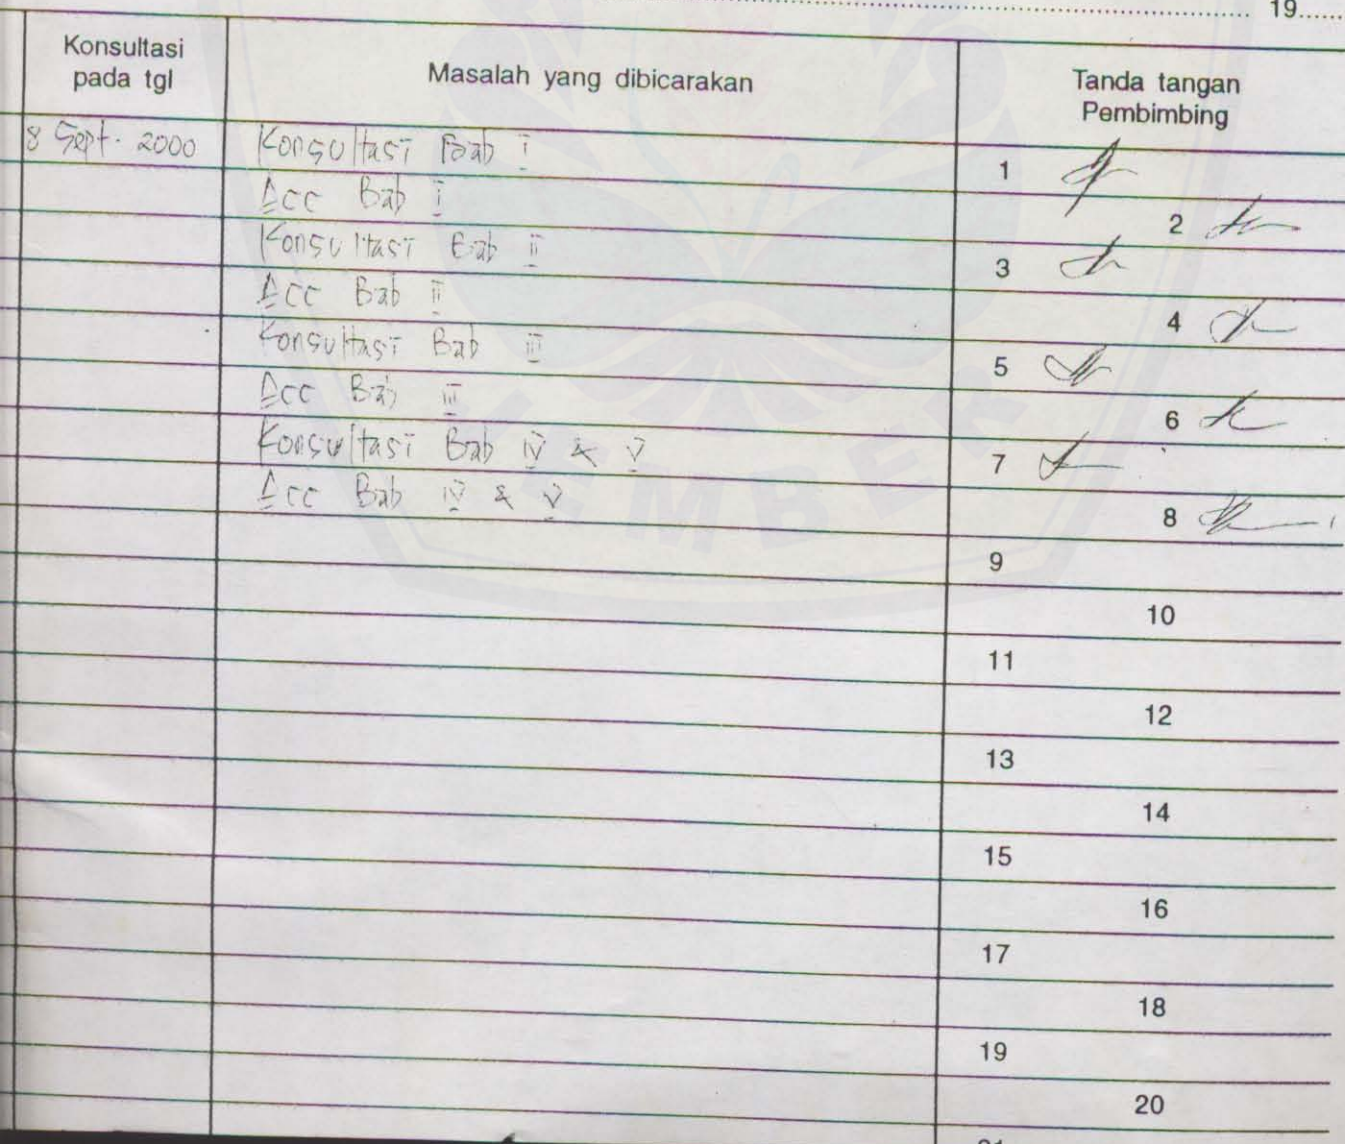 19......
Konsultasi
pada tgl
Masalah yang dibicarakan
Tanda tangan
Pembimbing
8 Sept. 2000 Konsultasi Bab I 1
Acc Bab I 2
Konsultasi Bab II 3
Acc Bab II 4
Konsultasi Bab III 5
Acc Bab III 6
Konsultasi Bab IV & V 7
Acc Bab IV & V 8
9
10
11
12
13
14
15
16
17
18
19
20